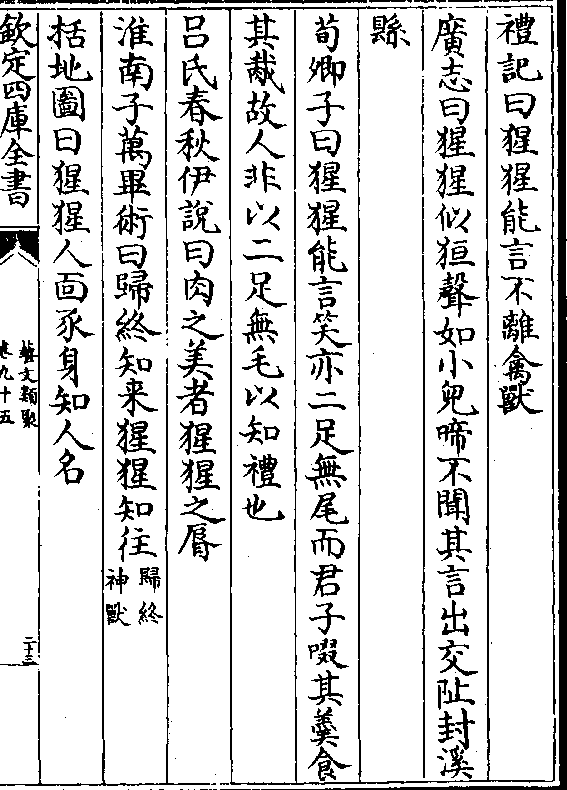 禮記曰猩猩能言不離禽獸
廣志曰猩猩似狟聲如小兒啼不聞其言出交阯封溪
縣
荀卿子曰猩猩能言笑亦二足無尾而君子啜其羹食
其胾故人非以二足無毛以知禮也
吕氏春秋伊說曰肉之美者猩猩之脣
淮南子萬畢術曰歸終知来猩猩知往歸終神獸
括地圖曰猩猩人面豕身知人名
欽定四庫全書
藝文類聚
卷九十五
二十三